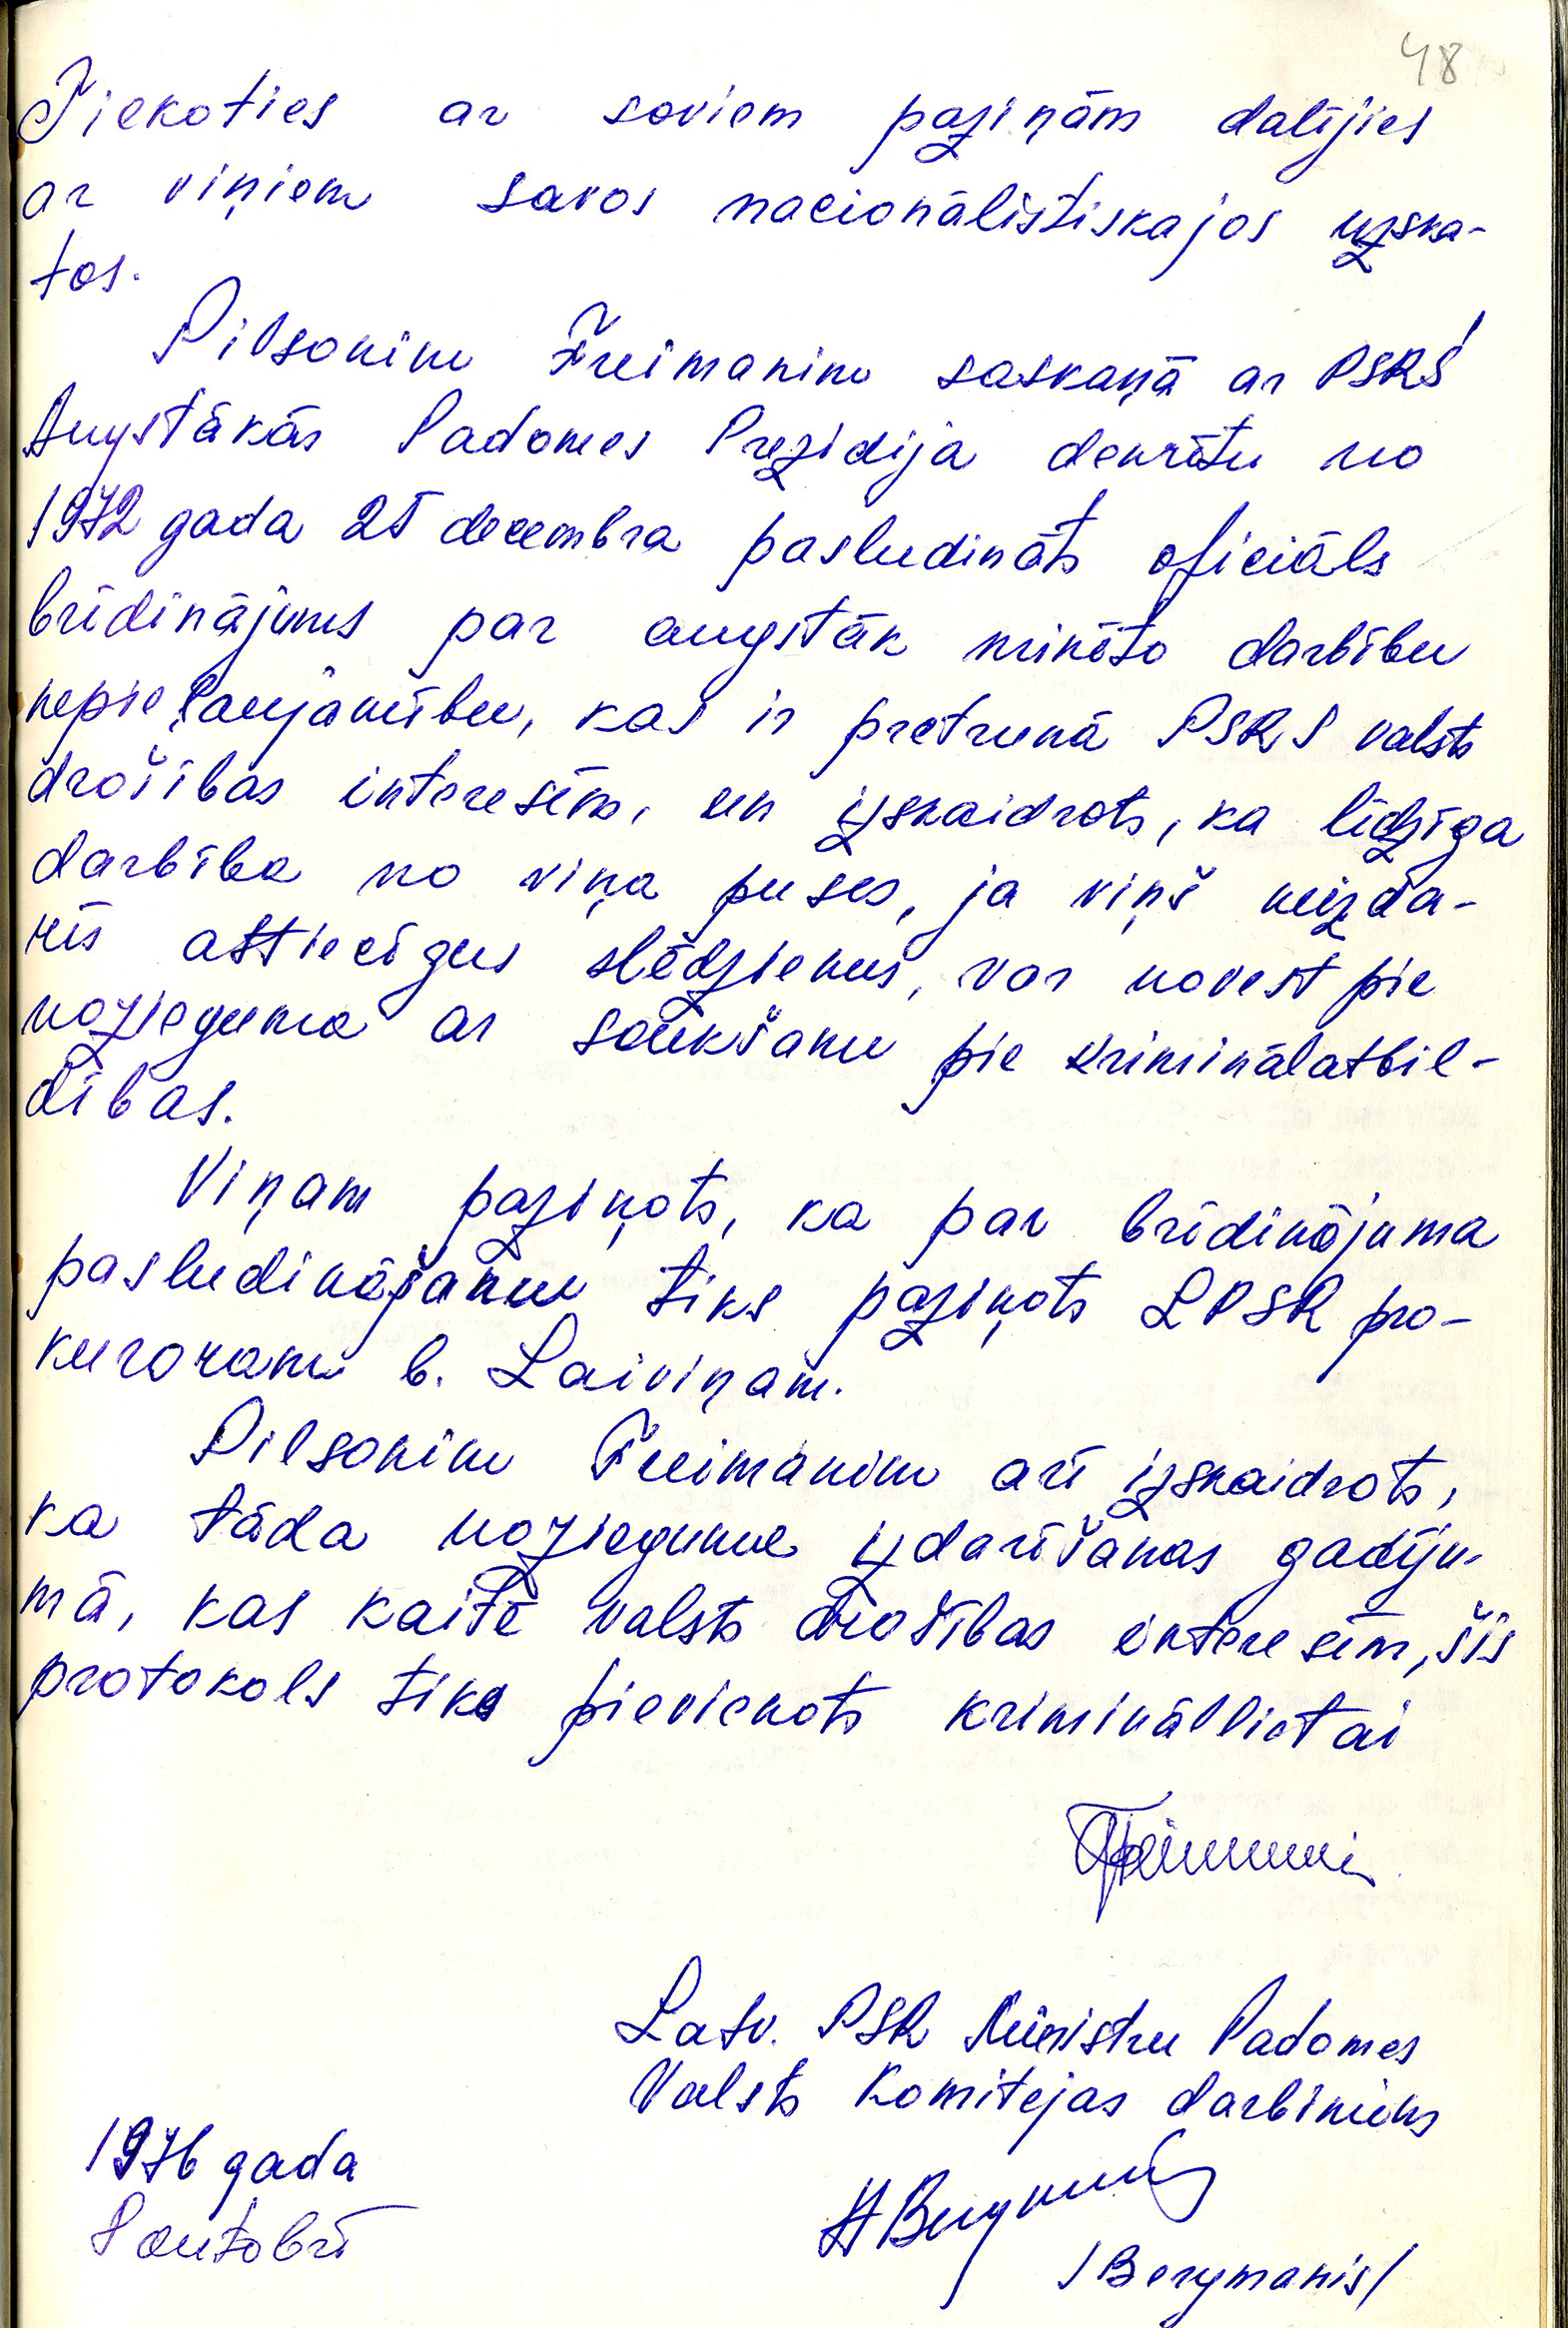 48
Tiekoties ar saviem paziņām dalījies
ar viņiem savos nacionālistiskajos uzska-
tos.
Pilsonim Freimanim saskaņā ar PSRS
Augstākās Padomes Prezidija dekrētu no
1972 gada 25 decembra pasludināts oficiāls
brīdinājums par augstāk minēto darbību
nepieļaujamību, kas ir pretrunā PSRS valsts
drošības interesēm, un izskaidrots, ka līdzīga
darbība no viņa puses, ja viņš neizda-
rīs attiecīgus slēdzienus, var novest pie
nozieguma ar saukšanu pie kriminālatbil-
dības.
Viņam paziņots, ka par brīdinājuma
pasludināšanu tiks paziņots LPSR pro-
kuroram b. Laiviņam.
Pilsonim Freimanim arī izskaidrots,
ka tāda nozieguma izdarīšanas gadīju-
mā, kas kaitē valsts drošības interesēm, šis
protokols tiks pievienots krimināllietai
Latv. PSR Ministru Padomes
Valsts Komitejas darbinieks
1976 gada
oktobrī
/Bergmanis/